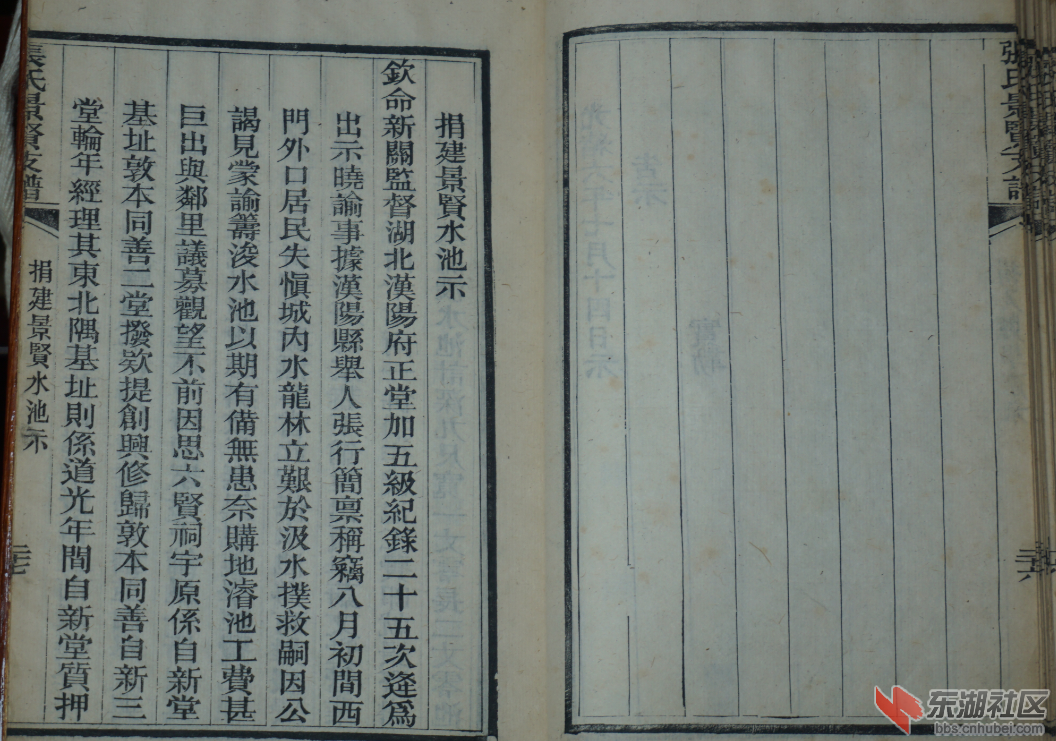 張氏景賢支譜
二十六
捐建景賢水池示
欽命新關監督湖北漢陽府正堂加五級紀錄二十五次逄爲
出示曉諭事據漢陽縣舉人張行簡禀稱竊八月初間西
門外口居民失愼城內水龍林立艱於汲水撲救嗣因公
謁見蒙諭籌浚水池以期有備無患奈購地濬池工費甚
巨出與鄰里議募觀望不前因思六賢祠宇原係自新堂
基址敦本同善二堂撥欵提創興修歸敦本同善自新三
堂輪年經理其東北隅基址則係道光年間自新堂質押
張氏景賢支譜
捐建景賢水池示
二十七
东湖社区
bbs.cnhubei.com